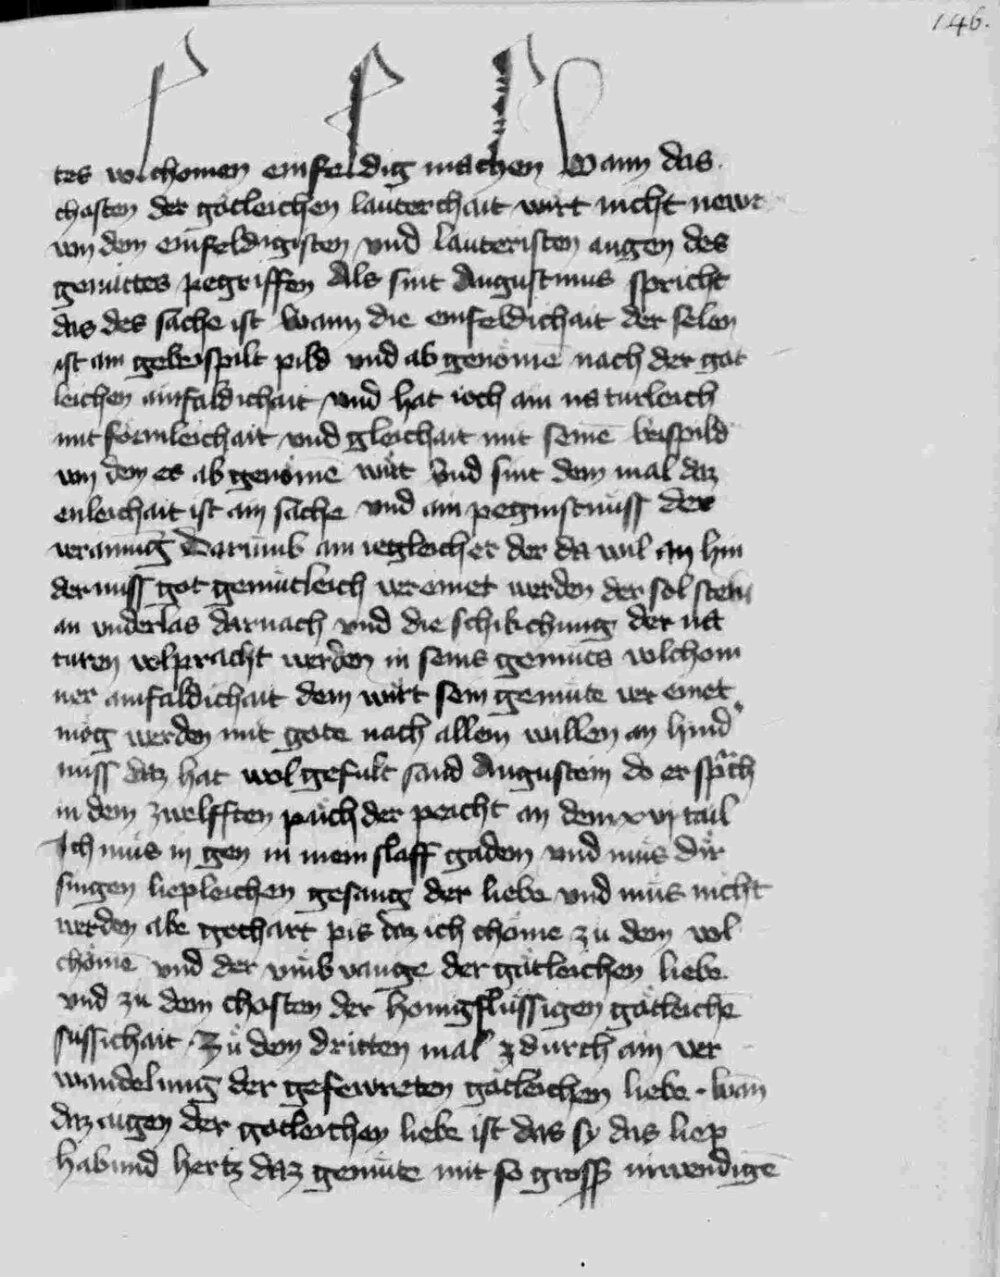 146.
tes volchomen einfeldig machen Wann das
chosten der götleichen lauterchait wirt nicht newr
von dem einfeldigisten vnd lauteristen augen des
gemüttes pegriffen Als sint Augustinus spricht
das des sache ist Wann die einfeldichait der selen
ist ain gebeispilt pild vnd ab genömē nach der got
leichen ainfaldichait vnd hat ioch ain naturleich
mit formleichait vnd gleichait mit seinē beispild
von dem es ab genömē wirt Vnd sint dem mal daz
enleichait ist ain sache vnd ain peginstnüss der
veraining Darumb ain iegleicher der da wil an hin
dernuss got gemütleich vereinet werden der sol sten
an vnderlas darnach vnd die schikchung der na
turen volpracht werden in seins gemüts volchom
ner ainfaldichait dem wirt sein gemüte ver einet
mög werden mit gote nach allem willen an hind
nuss daz hat wol gefult sand Augustein do er sprach
in dem zwelfften püch der peicht an dem xvj tail
Ich müs in gen in mein slaff gadem vnd müs dir
singen liepleichen gesang der liebe vnd müs nicht
werden abe gechart pis daz ich chöme zu dem vol
chömē vnd der vmb vange der götleichen liebe
vnd zu dem chosten der honigflüssigen götleichē
süssichait · Zu dem dritten mal durch ain ver
wandelung der gefewreten götleichen liebe · wan
daz aigen der götleichen liebe ist das sy das liep
habund hertz daz gemüte mit so gross inwendigē